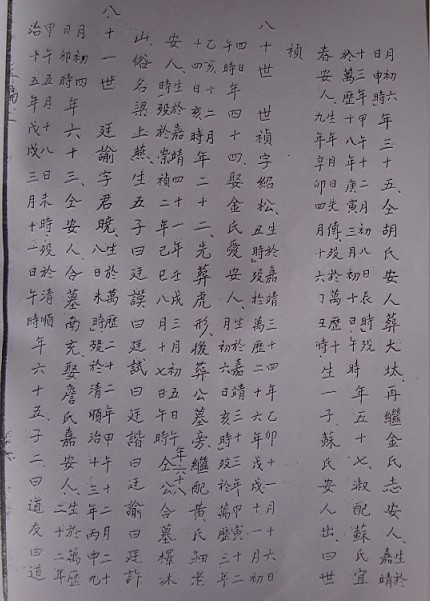 月初六日申時年三十五仝胡氏安人葬大坎再繼金氏志安人生於嘉靖
十三年甲午十二月初八日辰時歿於萬歷十八年庚寅三月初十日午時年五十七淑配蘇氏宜
春安人生一子蘇氏安人出曰世
禎
八十世 世禎字紹松生於嘉靖三十四年乙卯十一月十六日五時歿於萬歷二十六年戊戌十一月初
四日午時年四十四娶金氏愛安人生於嘉靖三十三年甲寅十二月初六日亥時歿於萬歷三年
乙亥十二月十四日亥時年二十二先葬虎形後葬公墓旁繼配黃氏細老
安人生於嘉靖四十一年壬戌三月初五日午時歿於崇禎二年己巳八月十七日午時年六十八仝公合墓
山俗名梁上燕生五子曰廷謨曰廷試曰廷諧曰廷諭曰廷許
八十一世 廷諭字君曉生於萬歷二十二年甲午十二月二十八日未時歿於清順治十三年丙申九
月初四日卯時年六十三仝安人合墓南充娶詹氏嘉安人生於萬歷二十二年
甲午五月十八日未時歿於清順治十五年戊戌三月十一日午時年六十五子二曰道友曰道